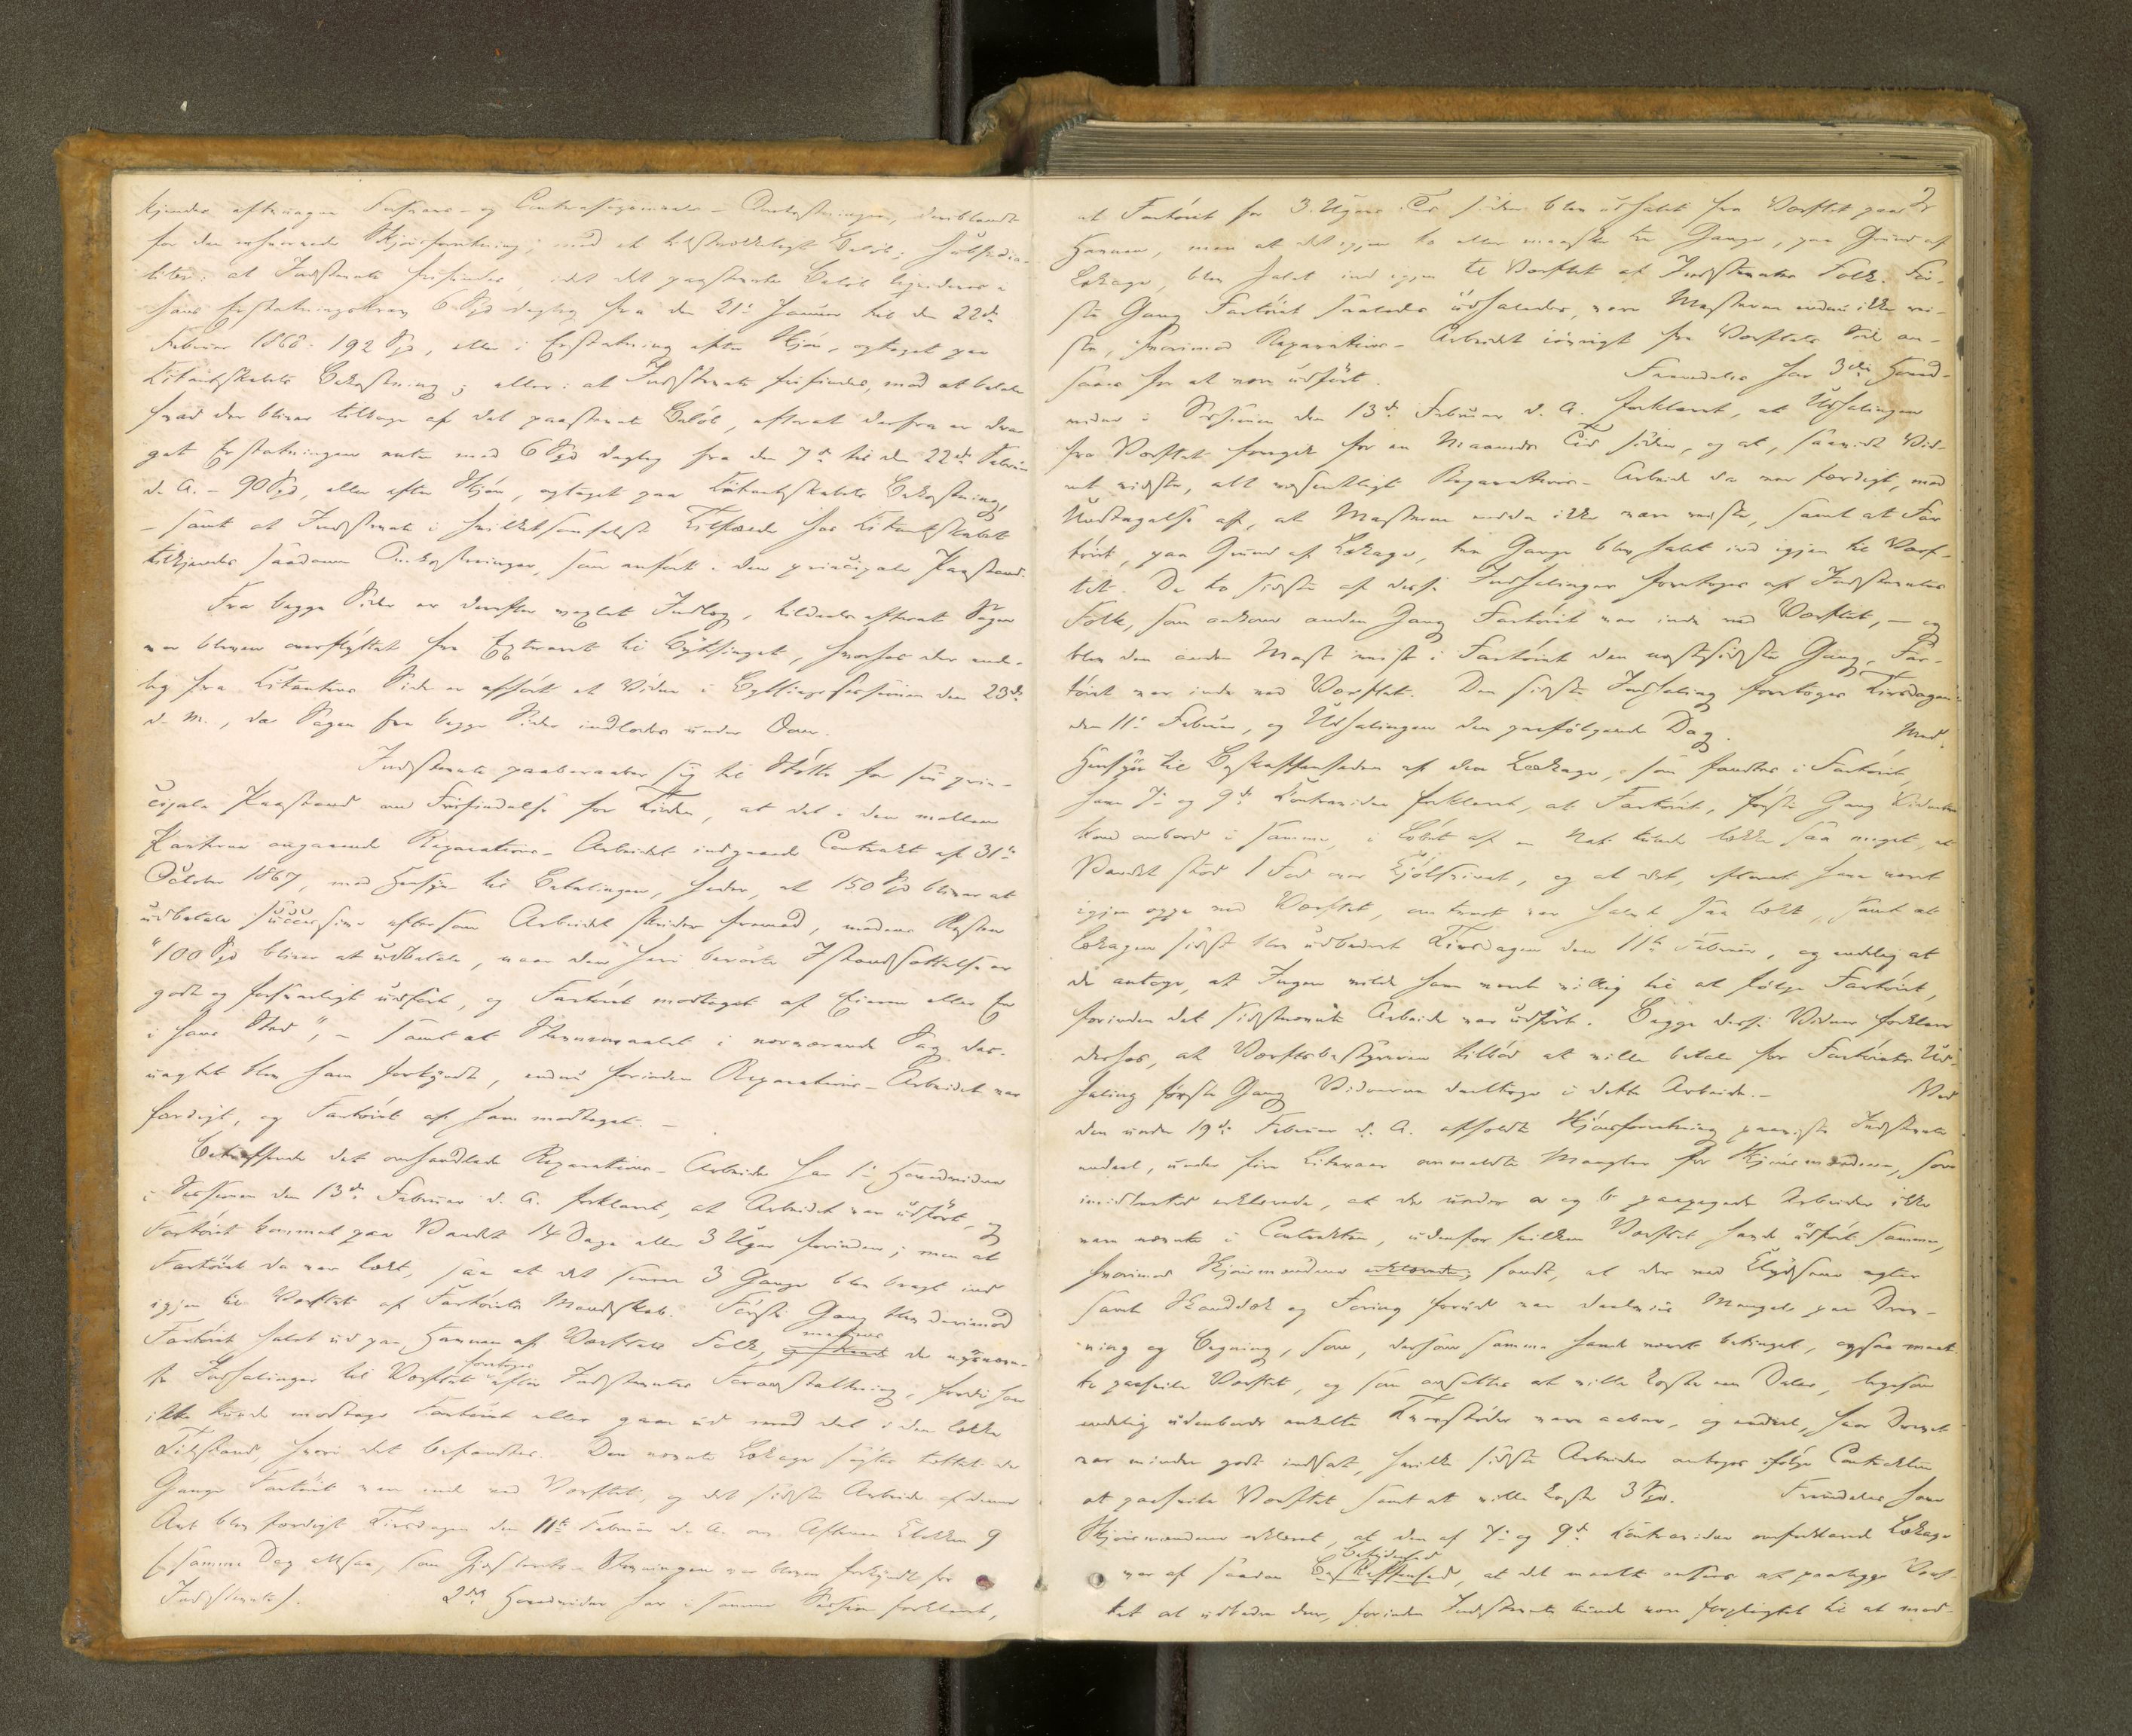 kjendes aftvungen Forsvars- og Contrasøgsmaals-Omkostninger, deriblandt
for den ommeldte Skjønsforretning, med et tilstrækkeligt Beløb; subsidia-
liter: at Indstevnte frifindes, idet det paastevnte Beløb liqvideres i
hans Erstatningskrav 6 Spd daglig fra den 21de Januar til den 22de
Februar 1868: 192 Spd, eller i Erstatning efter Skjøn, optaget paa
Citantskabets Bekostning; eller: at Indstevnte frifindes, mod at betale
hvad der bliver tilbage af det paastevnte Beløb, efterat derfra er dra-
get Erstatningen enten med 6 Spd daglig fra den 7de til den 22de Februar
d. A. – 90 Spd, eller efter Skjøn, optaget paa Citantskabets Bekostning,
– samt at Indstevnte i hvilketsomhelst Tilfælde hos Citantskabet
tilkjendes saadanne Omkostninger, som anført i den principale Paastand.
Fra begge Sider er derefter vexlet Indlæg, tildeels efterat Sagen
var bleven overflyttet fra Extraret til Bythinget, hvorhos der ende-
lig fra Citantens Side er afhørt et Vidne i Bythingssessionen den 23de
d. M., da Sagen fra begge Sider indlodes under Dom.
Indstevnte paaberaaber sig til Støtte for sin prin-
cipale Paastand om Frifindelse for Tiden, at det i den mellem
Parterne angaaende Reparations-Arbeidet indgaaede Contrakt af 31te
October 1867, med Hensyn til Betalingen, heder, at 150 Spd bliver at
udbetale successive eftersom Arbeidet skrider fremad, medens Resten
"100 Spd bliver at udbetale, naar den heri berørte Istandsættelse er
godt og forsvarligt udført, og Fartøiet modtaget af Eieren eller En
i hans Sted", – samt at Stevnemaalet i nærværende Sag des-
uagtet blev ham forkyndt, endnu forinden Reparations-Arbeidet var
færdigt, og Fartøiet af ham modtaget. –
Betræffende det omhandlede Reparations-Arbeide har 1ste Hovedvidne
i Sessionen den 13de Februar d. A. forklaret, at Arbeidet var udført, og
Fartøiet kommet paa Vandet 14 Dage eller 3 Uger forinden; men at
Fartøiet da var lækt, saa at det senere 3 Gange blev bragt ind
igjen til Værftet af Fartøiets Mandskab. Første Gang blev derimod
Fartøiet halet ud paa Havnen af Værftets Folk, medens de nysnævn-
te Indhalinger til Værftet foretoges efter Indstevntes Foranstaltning, fordi han
ikke kunde modtage Fartøiet eller gaa ud med det i den lække
Tilstand, hvori det befandtes. Den nævnte Lækage søgtes tættet de
Gange Fartøiet var inde ved Værftet, og det sidste Arbeide af denne
Art blev færdigt Tirsdagen den 11te Februar d. A. om Aftenen Klokken 9
(samme Dag altsaa, som Gjæsterets-Stevningen var bleven forkyndt for
Indstevnte). 2det Hovedvidne har i samme Session forklaret,
2
at Fartøiet for 3 Ugers Tid siden blev udhalet fra Værftet paa
Havnen, men at det igjen to eller maaske tre Gange, paa Grund af
Lækage, blev halet ind igjen til Værftet af Indstevntes Folk. Før-
ste Gang Fartøiet saaledes udhaledes, vare Masterne endnu ikke rei-
ste, hvorimod Reparations-Arbeidet iøvrigt fra Værftets Side an-
saaes for at være udført. Fremdeles har 3die Hoved-
vidne i Sessionen den 13de Februar d. A. forklaret, at Udhalingen
fra Værftet foregik for en Maaneds Tid siden, og at, saavidt Vid-
net vidste, alt væsentligt Reparations-Arbeide da var færdigt, med
Undtagelse af, at Masterne endda ikke vare reiste, samt at Far-
tøiet, paa Grund af Lækage, tre Gange blev halet ind igjen til Værf-
tet. De to sidste af disse Indhalinger foretoges af Indstevntes
Folk, som ankom anden Gang Fartøiet var inde ved Værftet, – og
blev den anden Mast reist i Fartøiet den næstsidste Gang, Far-
tøiet var inde ved Værftet. Den sidste Indhaling foretoges Tirsdagen
den 11te Februar, og Udhalingen den paafølgende Dag. Med
Hensyn til Beskaffenheden af den Lækage, som fandtes i Fartøiet,
have 7de og 9de Contravidne forklaret, at Fartøiet, første Gang Vidnerne
kom ombord i samme, i Løbet af en Nat kunde lække saa meget, at
Vandet stod 1 Fod over Kjølsvinet, og at det, efterat have været
igjen oppe ved Værftet, omtrent var halvt saa lækt, samt at
Lækagen sidst blev udbedret Tirsdagen den 11te Februar, og endelig at
de antoge, at Ingen vilde have været villig til at følge Fartøiet,
forinden det sidstnævnte Arbeide var udført. Begge disse Vidner forklare
derhos, at Værftsbestyreren tilbød at ville betale for Fartøiets Ud-
haling første Gang Vidnerne deeltoge i dette Arbeide. – Ved
den under 19de Februar d. A. afholdte Skjønsforretning paaviste Indstevnte
endeel, under fire Litraer anmeldte Mangler for Skjønsmændene, som
imidlertid erklærede, at de under a og b paapegede Arbeider ikke
vare nævnte i Contrakten, udenfor hvilken Værftet havde udført samme,
hvorimod Skjønsmændene fandt, at der ved Clydserne agter
samt Skanddæk og Foring forud var deelviis Mangel paa Driv-
ning og Begning, som, dersom samme havde været betinget, ogsaa maat-
te paahvile Værftet, og som ansattes at ville koste een Daler, ligesom
endelig udenbords enkelte Tværstøder vare aabne, og endeel, hvor Drevet
var mindre godt indsat, hvilke sidste Arbeider antoges ifølge Contracten
at paahvile Værftet samt at ville koste 3 Spd. Fremdeles have
Skjønsmændene erklæret, at den af 7de og 9de Contravidne omforklarede Lækage
var af saadan Betydenhed, at det maatte ansees at paaligge Værf-
tet at udbedre den, forinden Indstevnte kunde være forpligtet til at mod-